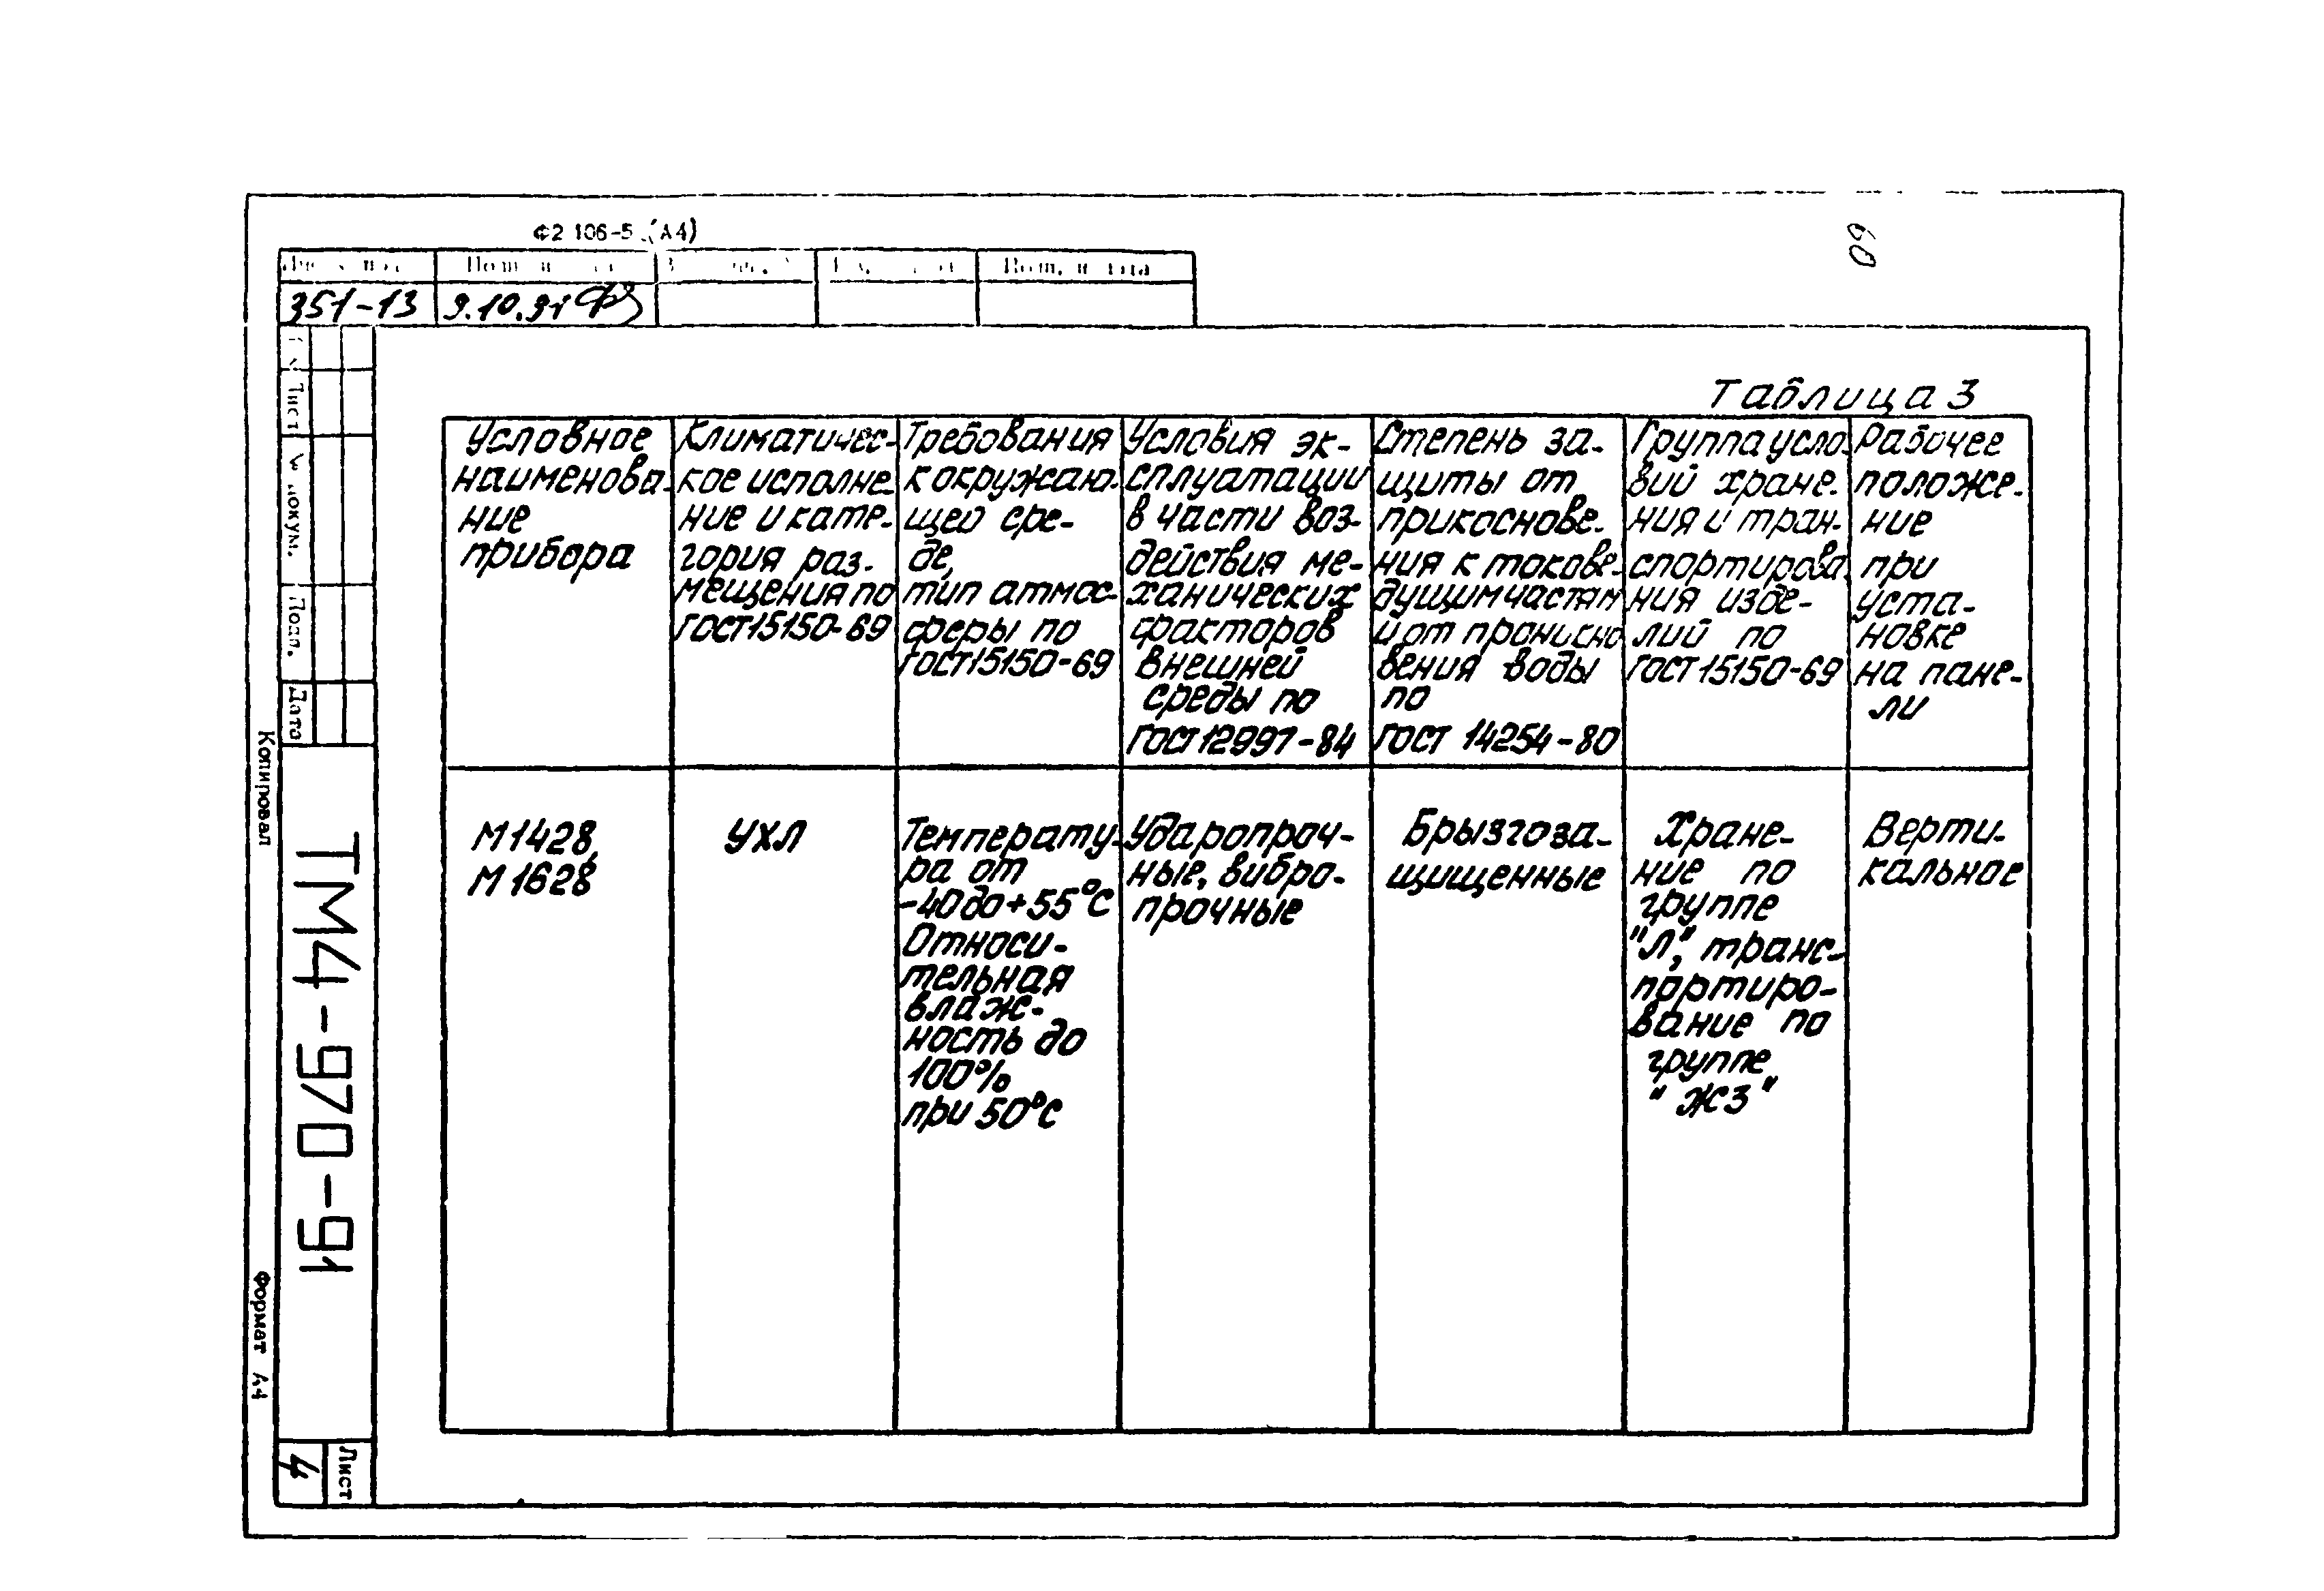 Ф2 106-5 (А4)
60
351-13
9.10.91
Таблица 3
Условное
наименова-
ние
прибора
Климатичес-
кое исполне-
ние и кате-
гория раз-
мещения по
ГОСТ 15150-69
Требования
к окружаю-
щей сре-
де,
тип атмос-
феры по
ГОСТ 15150-69
Условия эк-
сплуатации
в части воз-
действия ме-
ханических
факторов
внешней
среды по
ГОСТ 12997-84
Степень за-
щиты от
прикоснове-
ния к токове-
дущим частям
и от проникно
вения воды
по
ГОСТ 14254-80
Группа усло-
вий хране-
ния и тран-
спортирова-
ния изде-
лий по
ГОСТ 15150-69
Рабочее
положе-
ние
при
уста-
новке
на пане-
ли
М1428,
М1628
УХЛ
Температу-
ра от
-40 до +55°С
Относи-
тельная
влаж-
ность до
100%
при 50°С
Ударопроч-
ные, вибро-
прочные
Брызгоза-
щищенные
Хране-
ние по
группе
"Л", транс-
портиро-
вание по
группе
"ЖЗ"
Верти-
кальное
Лист
№ докум.
Подп.
Дата
Копировал
ТМ4-970-91
Формат А4
Лист
4